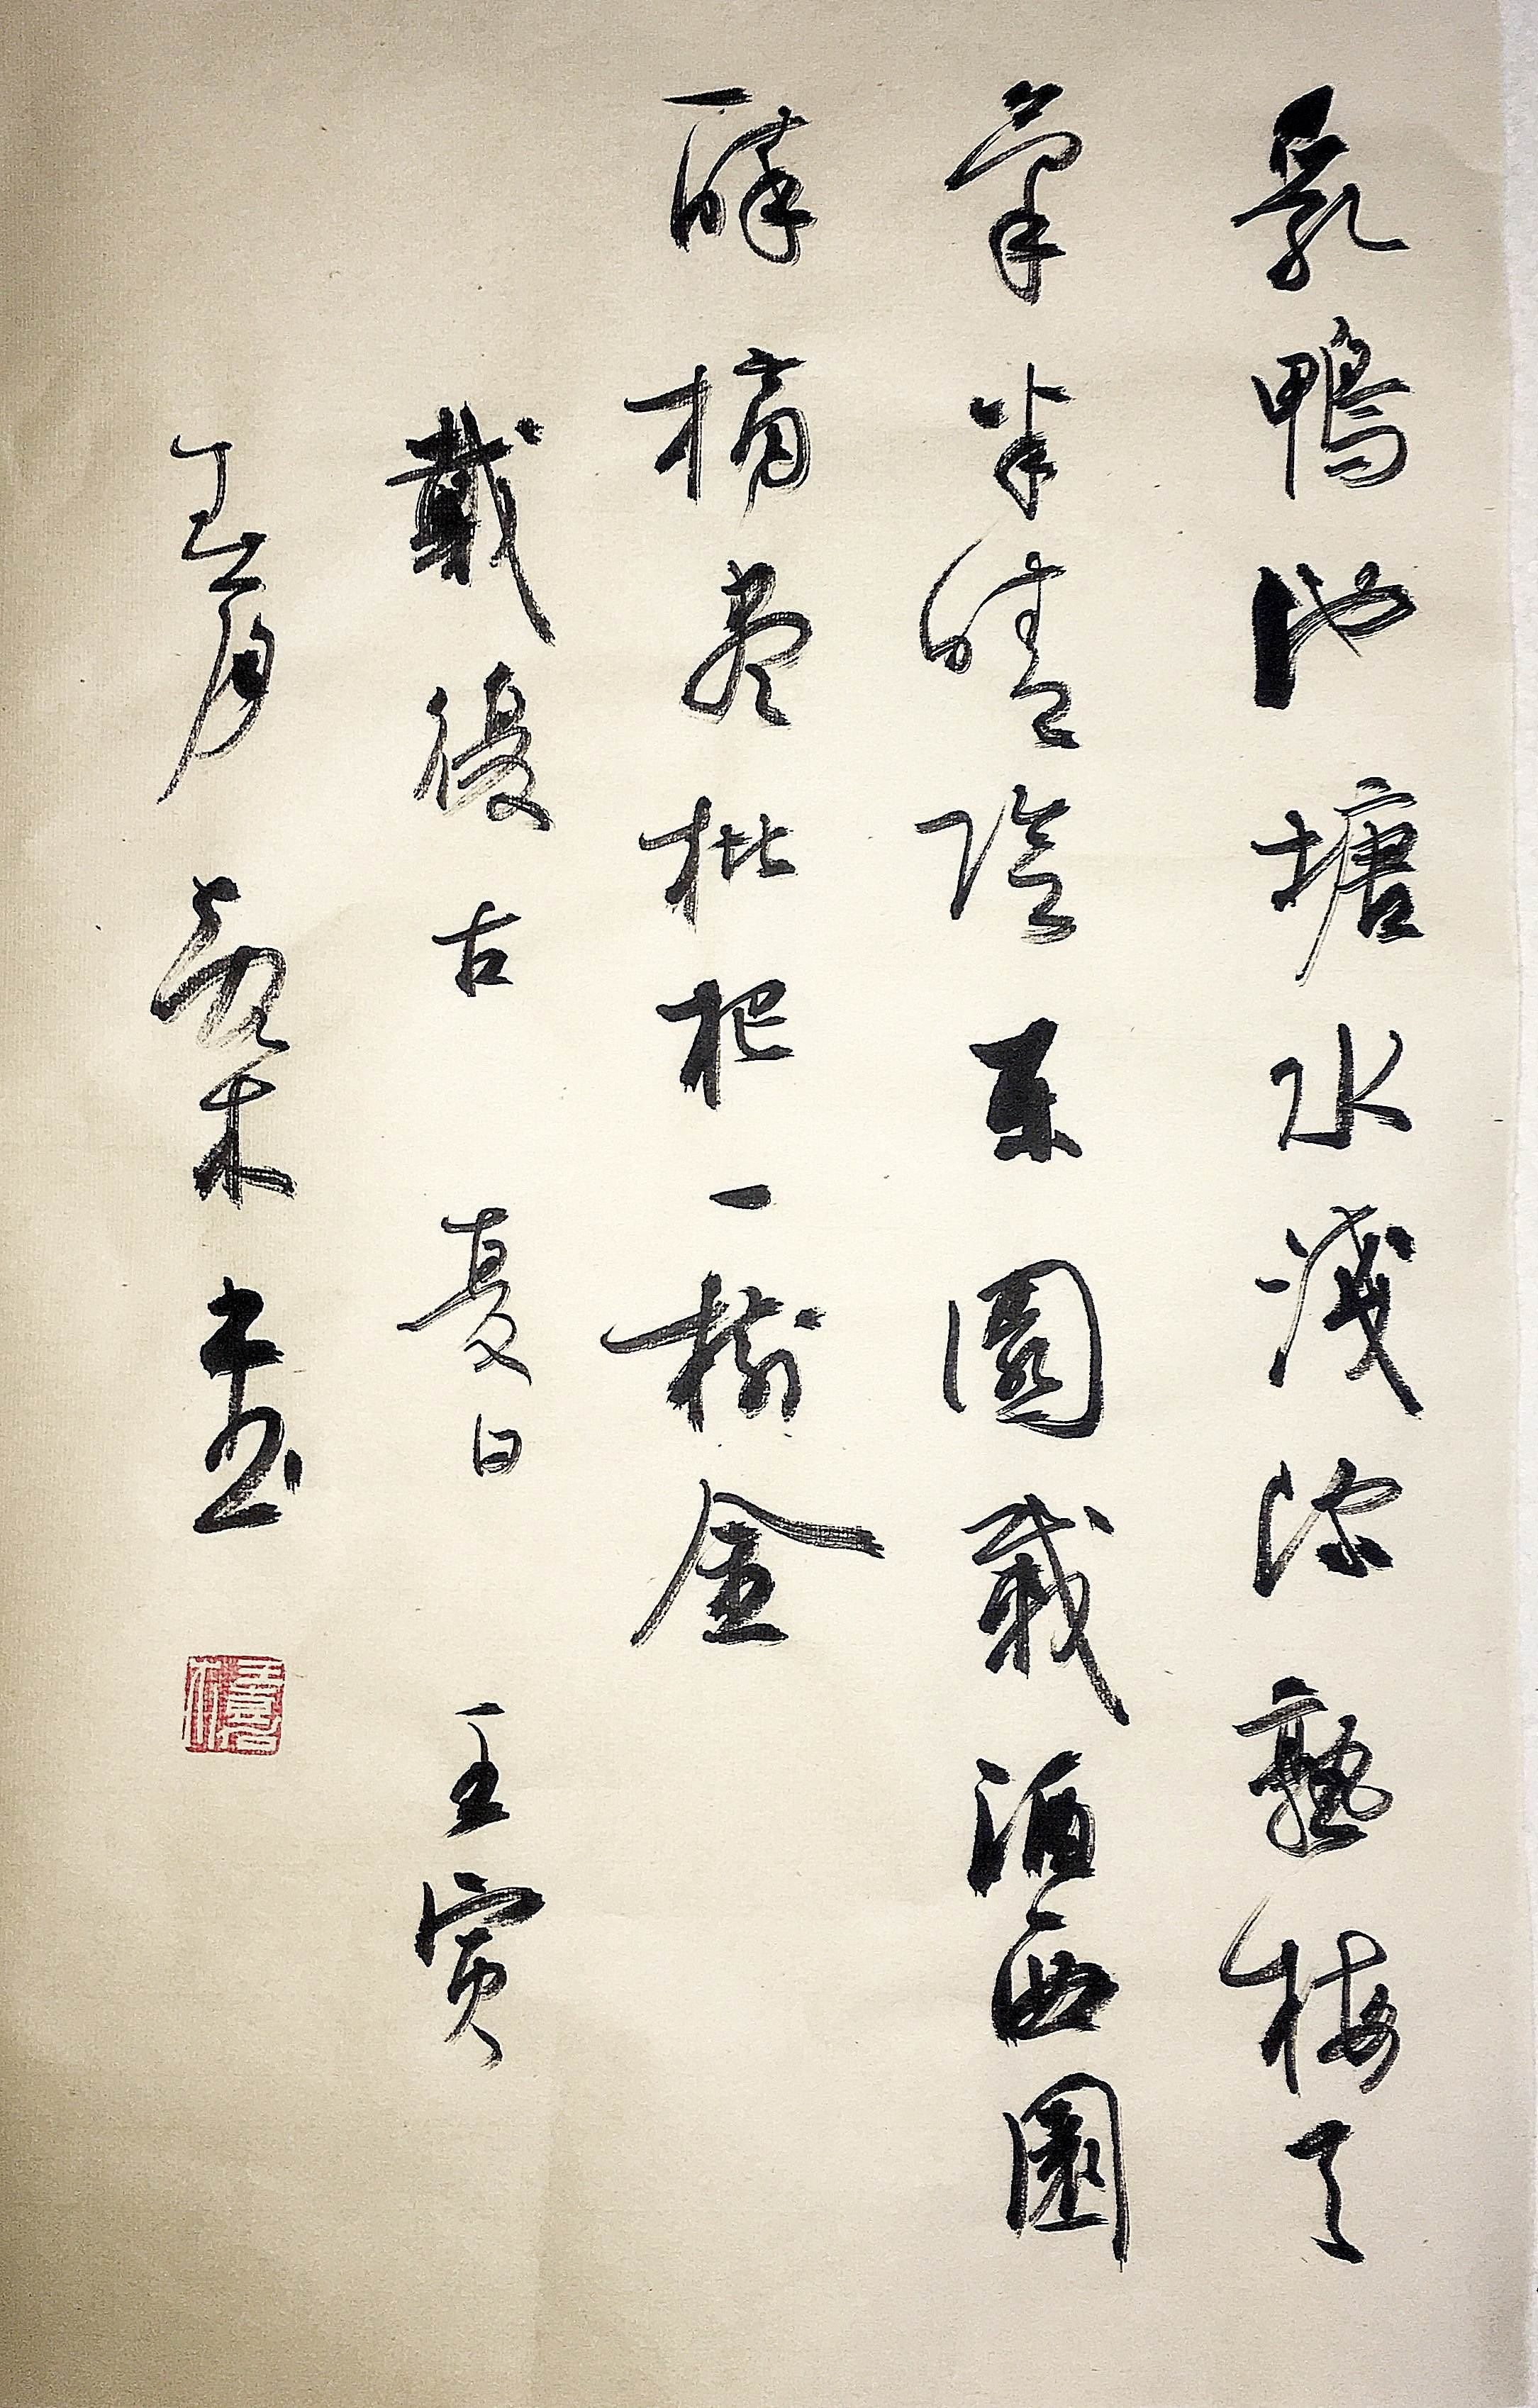 乳鴨池塘水淺深熟梅天
氣半晴陰東園載酒西園
醉摘盡枇杷一樹金
戴復古 夏日 壬寅
五月 木書